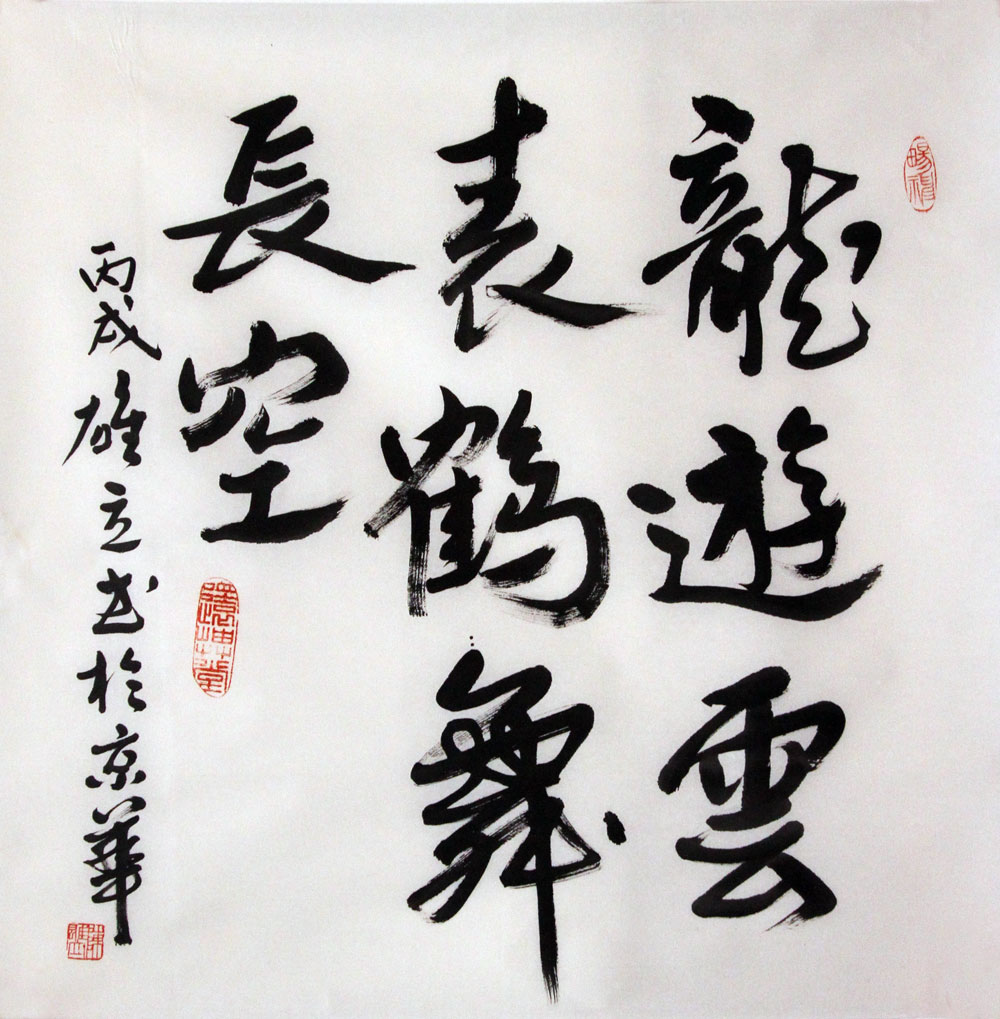 龍遊雲
表鶴舞
長空
丙戌雄立书於京華